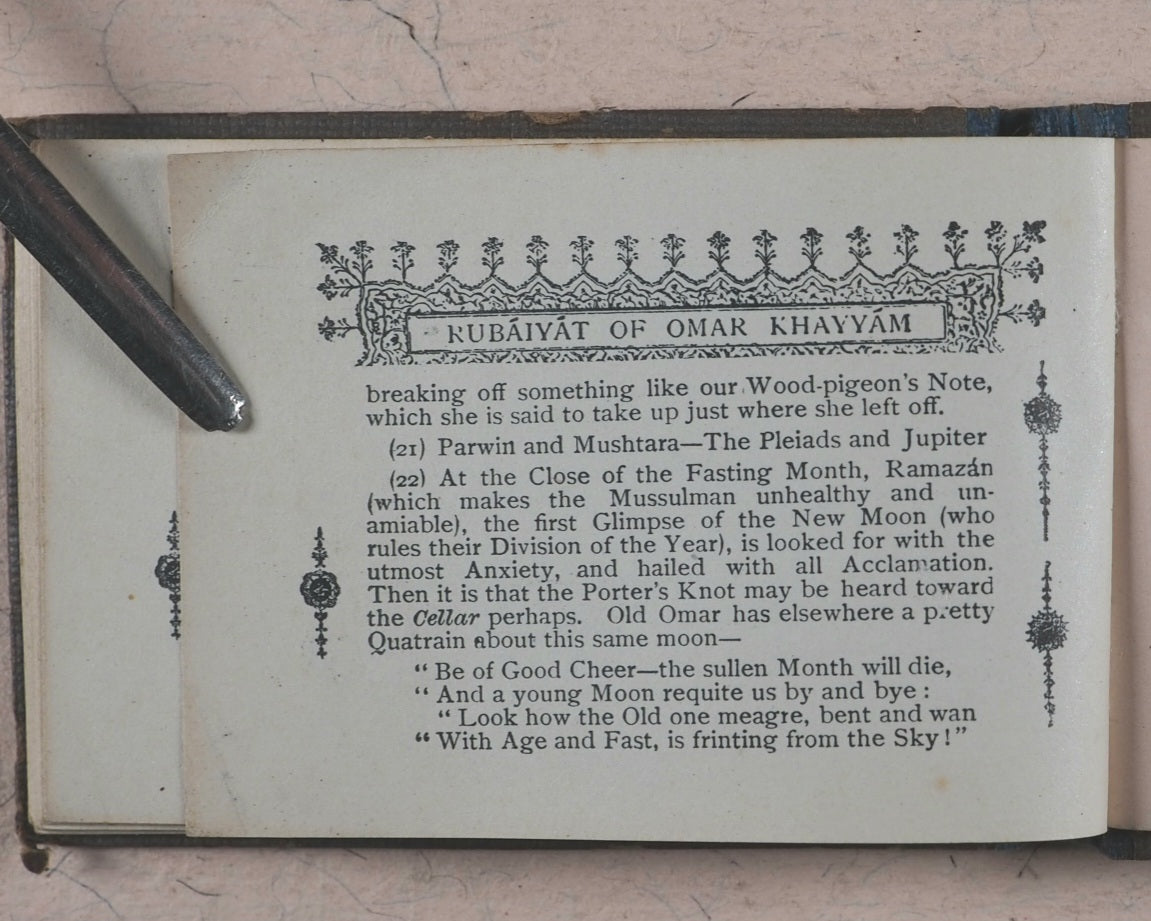 RUBÁIYÁT OF OMAR KHAYYÁM
breaking off something like our Wood-pigeon's Note,
which she is said to take up just where she left off.
(21) Parwin and Mushtara—The Pleiads and Jupiter
(22) At the Close of the Fasting Month, Ramazán
(which makes the Mussulman unhealthy and un-
amiable), the first Glimpse of the New Moon (who
rules their Division of the Year), is looked for with the
utmost Anxiety, and hailed with all Acclamation.
Then it is that the Porter's Knot may be heard toward
the Cellar perhaps. Old Omar has elsewhere a pretty
Quatrain about this same moon—
“ Be of Good Cheer—the sullen Month will die,
“ And a young Moon requite us by and bye :
“ Look how the Old one meagre, bent and wan
“ With Age and Fast, is frinting from the Sky ! ”